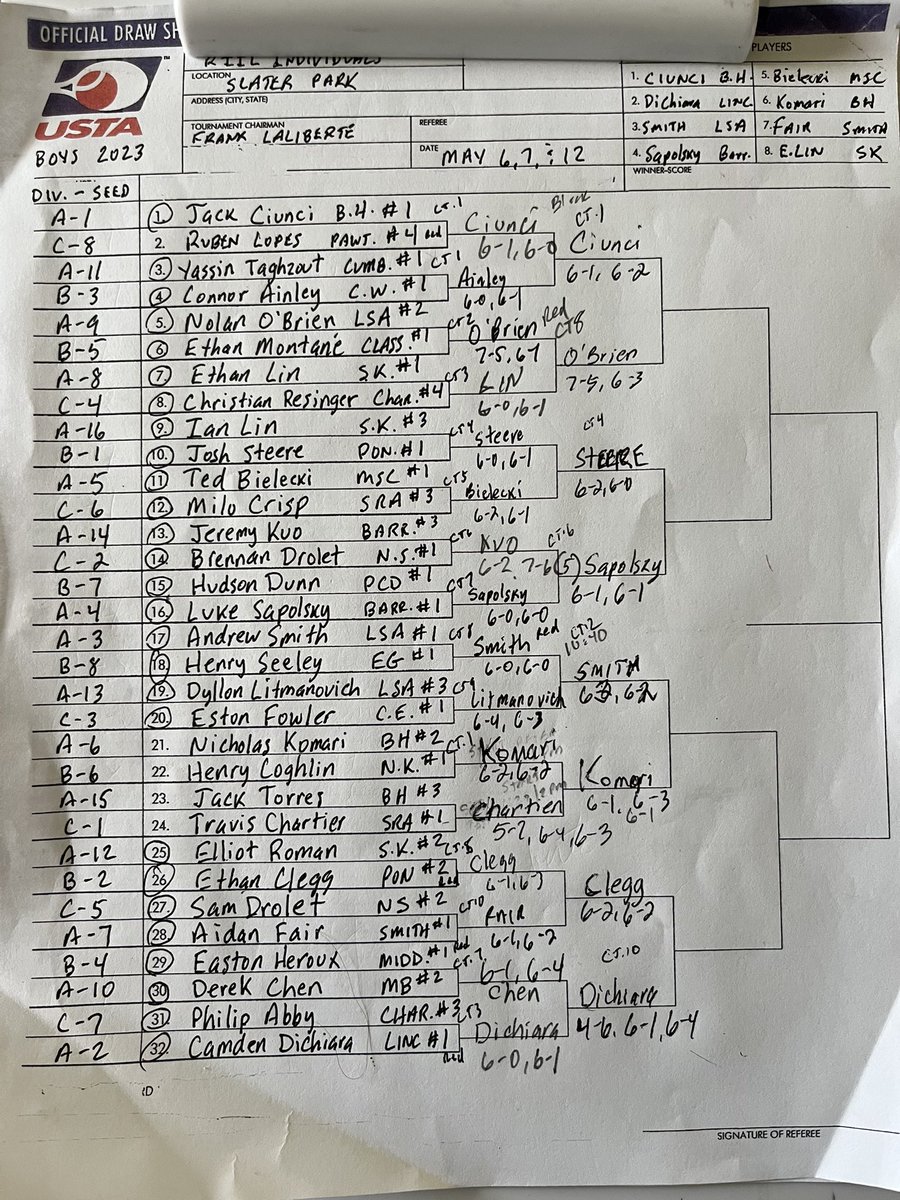 OFFICIAL DRAW SH
PLAYERS
RIIL INDIVIDUALS
LOCATION SLATER PARK
ADDRESS (CITY, STATE)
TOURNAMENT CHAIRMAN FRANK LALIBERTÉ
REFEREE
DATE MAY 6, 7, : 12
1. CIUNCI B.H. 5. Bielecki MSC
2. Dichiara LINC 6. Komari BH
3. SMITH LSA 7. FAIR SMITH
4. Sapolsky Barr. 8. E. LIN SK
WINNER-SCORE
USTA
BOYS 2023
DIV. - SEED
A-1 1. Jack Ciunci B.H. #1 CT.1
C-8 2. RUBEN LOPES PAWT. #4 Red
A-11 3. Yassin Taghzout CUMB. #1 CT1
B-3 4. Connor Ainley C.W. #1
A-9 5. Nolan O'Brien LSA #2 CT2
B-5 6. Ethan Montané CLASS. #1
A-8 7. Ethan Lin S.K. #1 CT3
C-4 8. Christian Resinger Char. #4
A-16 9. Ian Lin S.K. #3 CT4
B-1 10. Josh Steere PON. #1
A-5 11 Ted Bielecki MSC #1 CT5
C-6 12. Milo Crisp SRA #3
A-14 13. Jeremy Kuo BARR. #3 CT6
C-2 14. Brennan Drolet N.S. #1
B-7 15 Hudson Dunn PCD #1 CT7
A-4 16. Luke Sapolsky BARR. #1
A-3 17 Andrew Smith LSA #1 CT8
B-8 18. Henry Seeley EG #1
A-13 19. Dyllon Litmanovich LSA #3 CT9
C-3 20. Eston Fowler C.E. #1
A-6 21. Nicholas Komari BH #2 CT.1
B-6 22. Henry Coghlin N.K. #1
A-15 23. Jack Torres BH #3
C-1 24. Travis Chartier SRA #1
A-12 25 Elliot Roman S.K. #2 CT.8
B-2 26 Ethan Clegg PON #2 Red
C-5 27. Sam Drolet NS #2 CT10
A-7 28. Aidan Fair SMITH #1
B-4 29 Easton Heroux MIDD. #1 Red
A-10 30 Derek Chen MB #2 CT.7
C-7 31. Philip Abby CHAR. #3 CT3
A-2 32. Camden Dichiara LINC #1 Red
Ciunci
6-1, 6-0
Ainley
6-0, 6-1
O'Brien Red
7-5, 6-1
LIN
6-0, 6-1
Steere
6-0, 6-1
Bielecki
6-2, 6-1
KUO
6-2, 7-6 (5)
Sapolsky
6-0, 6-0
Smith Red
6-0, 6-0
Litmanovich
6-4, 6-3
Komari
6-2, 6-2
Chartier
5-7, 6-4, 6-3
Clegg
6-1, 6-3
FAIR
6-1, 6-2
6-1, 6-4
Chen
Dichiara
6-0, 6-1
CT.1
Ciunci
6-1, 6-2
CT8
O'Brien
7-5, 6-3
CT4
STEERE
6-2, 6-0
CT.6
Sapolsky
6-1, 6-1
CT.2
10:40
SMITH
6-2, 6-2
Komari
6-1, 6-3
6-1
Clegg
6-2, 6-2
CT.10
Dichiara
4-6, 6-1, 6-4
RD
SIGNATURE OF REFEREE